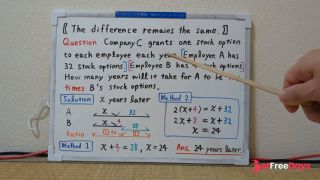 〖 The difference remains the same. 〗
Question Company C grants one stock option
to each employee each year. Employee A has
32 stock options. Employee B has stock options.
How many years will it take for A to be
times B's stock options.
Solution x years later
Method 2
A x 32
B x 4 28
Ratio 1 1
2(x+4) = x+32
2x+8 = x+32
x = 24
Method 1 x+4 = 28, x = 24 Ans. 24 years later
FreeDays